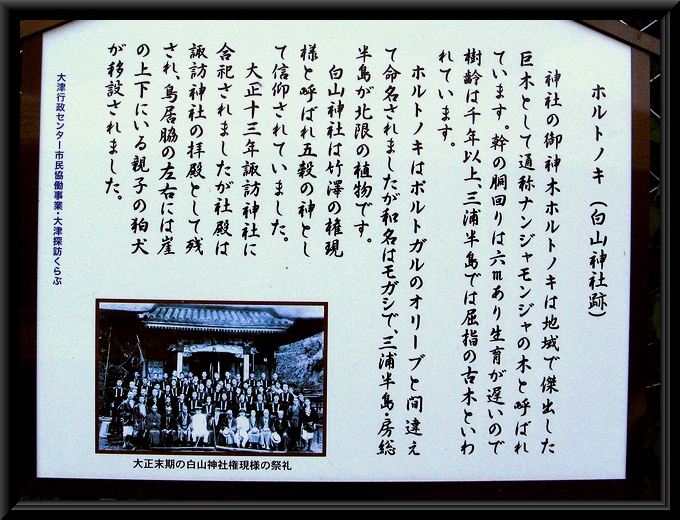 ホルトノキ(白山神社跡)
神社の御神木ホルトノキは地域で傑出した
巨木として通称ナンジャモンジャの木と呼ばれ
ています。幹の胴回りは六mあり生育が遅いので
樹齢は千年以上、三浦半島では屈指の古木といわ
れています。
ホルトノキはポルトガルのオリーブと間違え
て命名されましたが和名はモガシで、三浦半島・房総
半島が北限の植物です。
白山神社は竹澤の権現
様と呼ばれ五穀の神とし
て信仰されていました。
大正十三年諏訪神社に
合祀されましたが社殿は
諏訪神社の拝殿として残
され、鳥居脇の左右には崖
の上下にいる親子の狛犬
が移設されました。
大津行政センター市民協働事業・大津探訪くらぶ
大正末期の白山神社権現様の祭礼